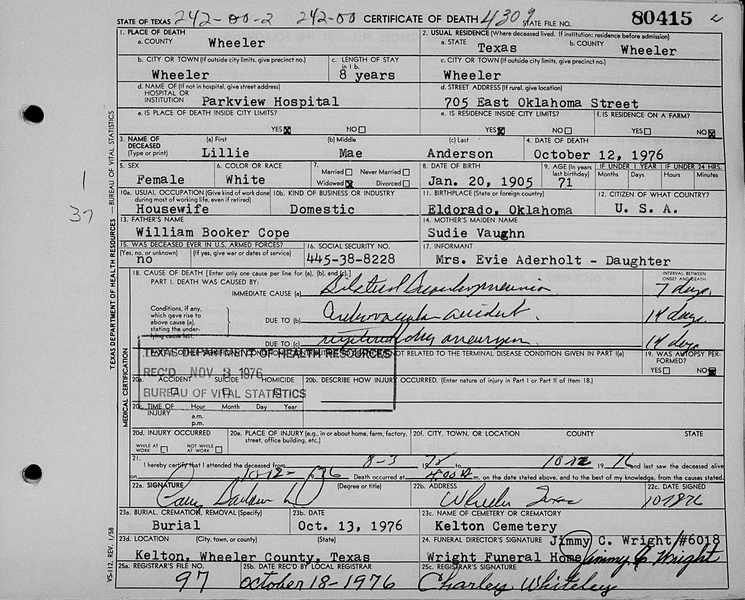 STATE OF TEXAS 242-00-2 242-00 CERTIFICATE OF DEATH 4309 STATE FILE NO. 80415
1. PLACE OF DEATH
a. COUNTY Wheeler
2. USUAL RESIDENCE (Where deceased lived. If institution: residence before admission)
a. STATE Texas b. COUNTY Wheeler
b. CITY OR TOWN (If outside city limits, give precinct no.) Wheeler
c. LENGTH OF STAY in 1 b. 8 years
c. CITY OR TOWN (If outside city limits, give precinct no.) Wheeler
d. NAME OF (If not in hospital, give street address) HOSPITAL OR INSTITUTION Parkview Hospital
d. STREET ADDRESS (If rural, give location) 705 East Oklahoma Street
e. IS PLACE OF DEATH INSIDE CITY LIMITS? YES NO
e. IS RESIDENCE INSIDE CITY LIMITS? YES NO
f. IS RESIDENCE ON A FARM? YES NO
3. NAME OF DECEASED (Type or print) (a) First Lillie (b) Middle Mae (c) Last Anderson
4. DATE OF DEATH October 12, 1976
5. SEX Female
6. COLOR OR RACE White
7. Married Never Married Widowed Divorced
8. DATE OF BIRTH Jan. 20, 1905
9. AGE (In years last birthday) 71 IF UNDER 1 YEAR Months Days IF UNDER 24 HRS. Hours Minutes
10a. USUAL OCCUPATION (Give kind of work done during most of working life, even if retired) Housewife
10b. KIND OF BUSINESS OR INDUSTRY Domestic
11. BIRTHPLACE (State or foreign country) Eldorado, Oklahoma
12. CITIZEN OF WHAT COUNTRY? U. S. A.
13. FATHER'S NAME William Booker Cope
14. MOTHER'S MAIDEN NAME Sudie Vaughn
15. WAS DECEASED EVER IN U.S. ARMED FORCES? (Yes, no, or unknown) no (If yes, give war or dates of service)
16. SOCIAL SECURITY NO. 445-38-8228
17. INFORMANT Mrs. Evie Aderholt - Daughter
18. CAUSE OF DEATH [Enter only one cause per line for (a), (b), and (c).]
PART I. DEATH WAS CAUSED BY:
IMMEDIATE CAUSE (a) Bilateral Bronchopneumonia
INTERVAL BETWEEN ONSET AND DEATH 7 days
Conditions, if any, which gave rise to above cause (a), stating the underlying cause last.
DUE TO (b) Cerebrovascular accident 14 days
DUE TO (c) aneurysm 14 days
NOT RELATED TO THE TERMINAL DISEASE CONDITION GIVEN IN PART I(a)
19. WAS AUTOPSY PERFORMED? YES NO
TEXAS DEPARTMENT OF HEALTH RESOURCES
REC'D NOV 3 1976
BUREAU OF VITAL STATISTICS
20a. ACCIDENT SUICIDE HOMICIDE
20b. DESCRIBE HOW INJURY OCCURRED. (Enter nature of injury in Part I or Part II of item 18.)
20c. TIME OF INJURY Hour Month Day Year
a.m.
p.m.
20d. INJURY OCCURRED WHILE AT WORK NOT WHILE AT WORK
20e. PLACE OF INJURY (e.g., in or about home, farm, factory, street, office building, etc.)
20f. CITY, TOWN, OR LOCATION COUNTY STATE
21. I hereby certify that I attended the deceased from 8-3 1976 and last saw the deceased alive
Death occurred at m. on the date stated above, and to the best of my knowledge, from the causes stated.
22a. SIGNATURE (Degree or title)
22b. ADDRESS Wheeler Texas
22c. DATE SIGNED
23a. BURIAL, CREMATION, REMOVAL (Specify) Burial
23b. DATE Oct. 13, 1976
23c. NAME OF CEMETERY OR CREMATORY Kelton Cemetery
23d. LOCATION (City, town, or county) (State) Kelton, Wheeler County, Texas
24. FUNERAL DIRECTOR'S SIGNATURE Jimmy C. Wright/#6018
Wright Funeral Home Jimmy C Wright
25a. REGISTRAR'S FILE NO. 97
25b. DATE REC'D BY LOCAL REGISTRAR October 18-1976
25c. REGISTRAR'S SIGNATURE Charley Whiteley
TEXAS DEPARTMENT OF HEALTH RESOURCES—BUREAU OF VITAL STATISTICS
MEDICAL CERTIFICATION
VS-112, REV. 1/58
1
37